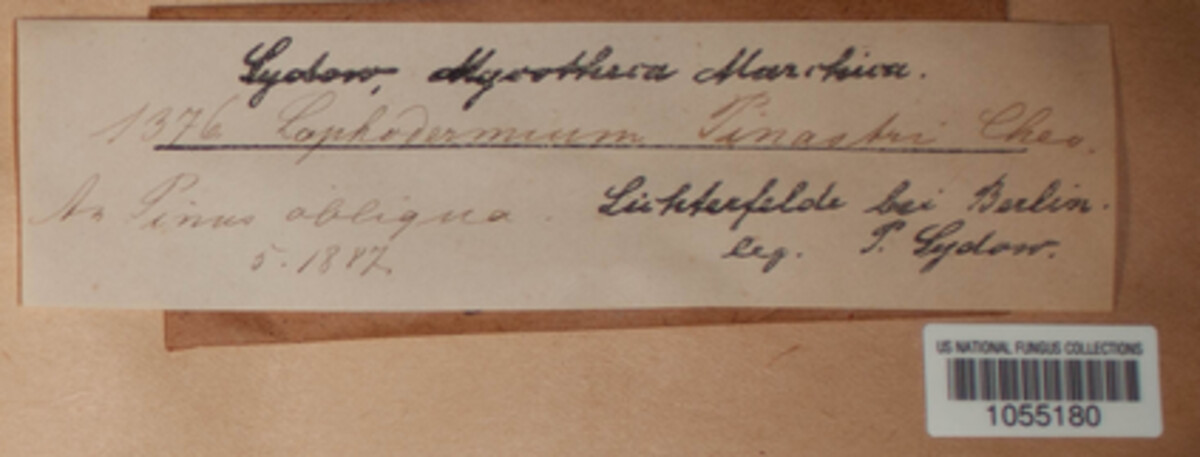 Sydow, Mycotheca Marchica.
1376 Lophodermium Pinastri Chev.
An Pinus obliqua. Lichterfelde bei Berlin.
5. 1887. leg. P. Sydow.
US NATIONAL FUNGUS COLLECTIONS
1055180